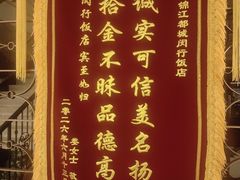 锦江都城闵行饭店
诚实可信美名扬
拾金不昧品德高
闵行饭店 宾至如归
娄女士 敬
二零二六年六月十三